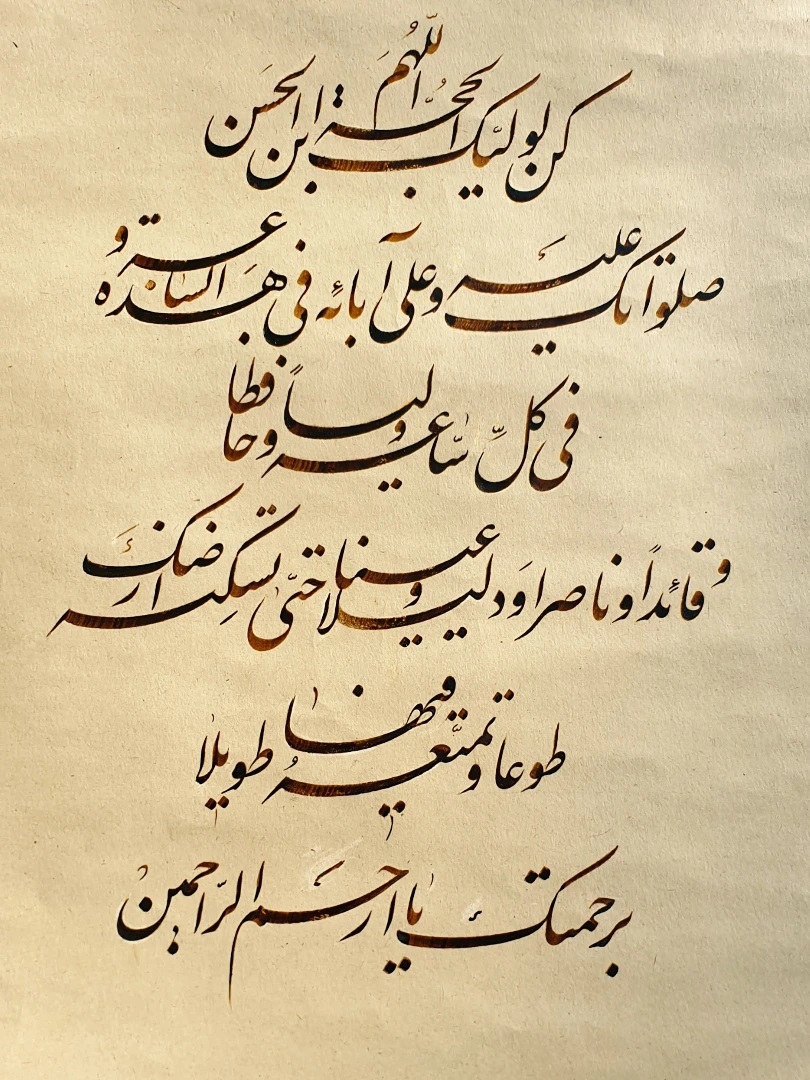 اللّهُمَ
كن لوليّك الحجّة ابن الحسَن
صلواتك عليَه وعلى آبائه في هذه السّاعة و
في كلِّ ساعة وليّاً وحافظا
و قائداً وناصرا وَدليلا وعينا حتّى تسكِنه ارضَك
طوعا وتمتّعهُ فيها طويلا
برحمتك يا ارحَم الرّاحمين